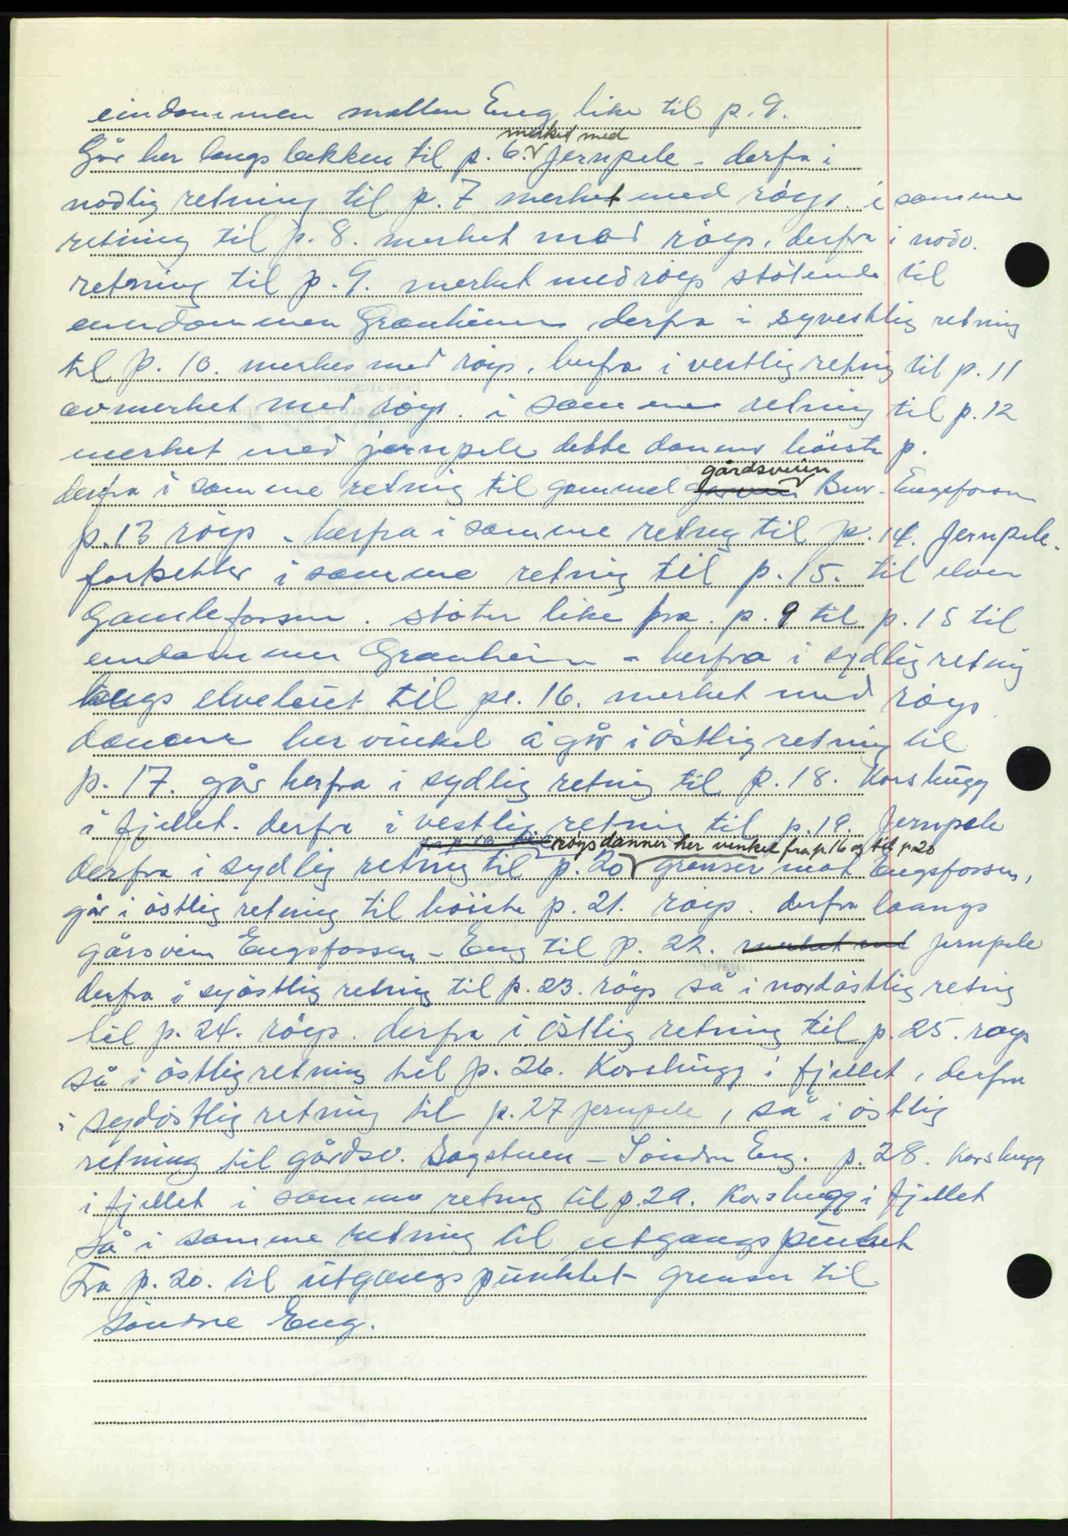 eiendommen mellem Eng like til p. 9.
Går her langs bekken til p. 6. merket med Jernpele - derfra i
nodlig retning til p. 7 merket med röys. i samme
retning til p. 8. merket med röys, derfra i nodv.
retning til p. 9. merket med röys stötende til
eiendommen Granheim derfra i syvestlig retning
til p. 10. merkes med röys, herfra i vestlig retning til p. 11
avmerket med röys. i samme retning til p. 12
merket med jernpele dette danner höiste p.
derfra i samme retning til gammel gårdsveien Buv - Engsfossen
p. 13 röys - herfra i samme retnig til p. 14. Jernpele.
fortsetter i samme retnig til p. 15. til elven
Gamlefossen. stöter like fra p. 9 til p. 15 til
eiendommen Granheim - herfra i sydlig retnig
langs elveleiet til p. 16. merket med röys
danner her vinkel å går i östlig retning til
p. 17. går herfra i sydlig retnig til p. 18. Korshugg
i fjellet. derfra i vestlig retnig til p. 19. Jernpele
röys danner her vinkel fra p. 16 og til p. 20
derfra i sydlig retnig til p. 20 grenser mot Engsfossen,
går i östlig retnig til höiste p. 21. röys. derfra laangs
gårsveien Engsfossen - Eng til p. 22. merket med jernpele
derfra i syöstlig retnig til p. 23. röys så i nordöstlig retnig
til p. 24. röys. derfra i östlig retning til p. 25. röys
så i östlig retning til p. 26. Korshugg i fjellet, derfra
i sydöstlig retning til p. 27 jernpele, så i östlig
retning til gårdsv. Sagstuen - Söndre Eng. p. 28. Korshugg
i fjellet i samme retnig til p. 29. Korshugg i fjellet
Så i samme retning til utgangspunket
Fra p. 20. til utgangspunktet grenser til
Söndre Eng.